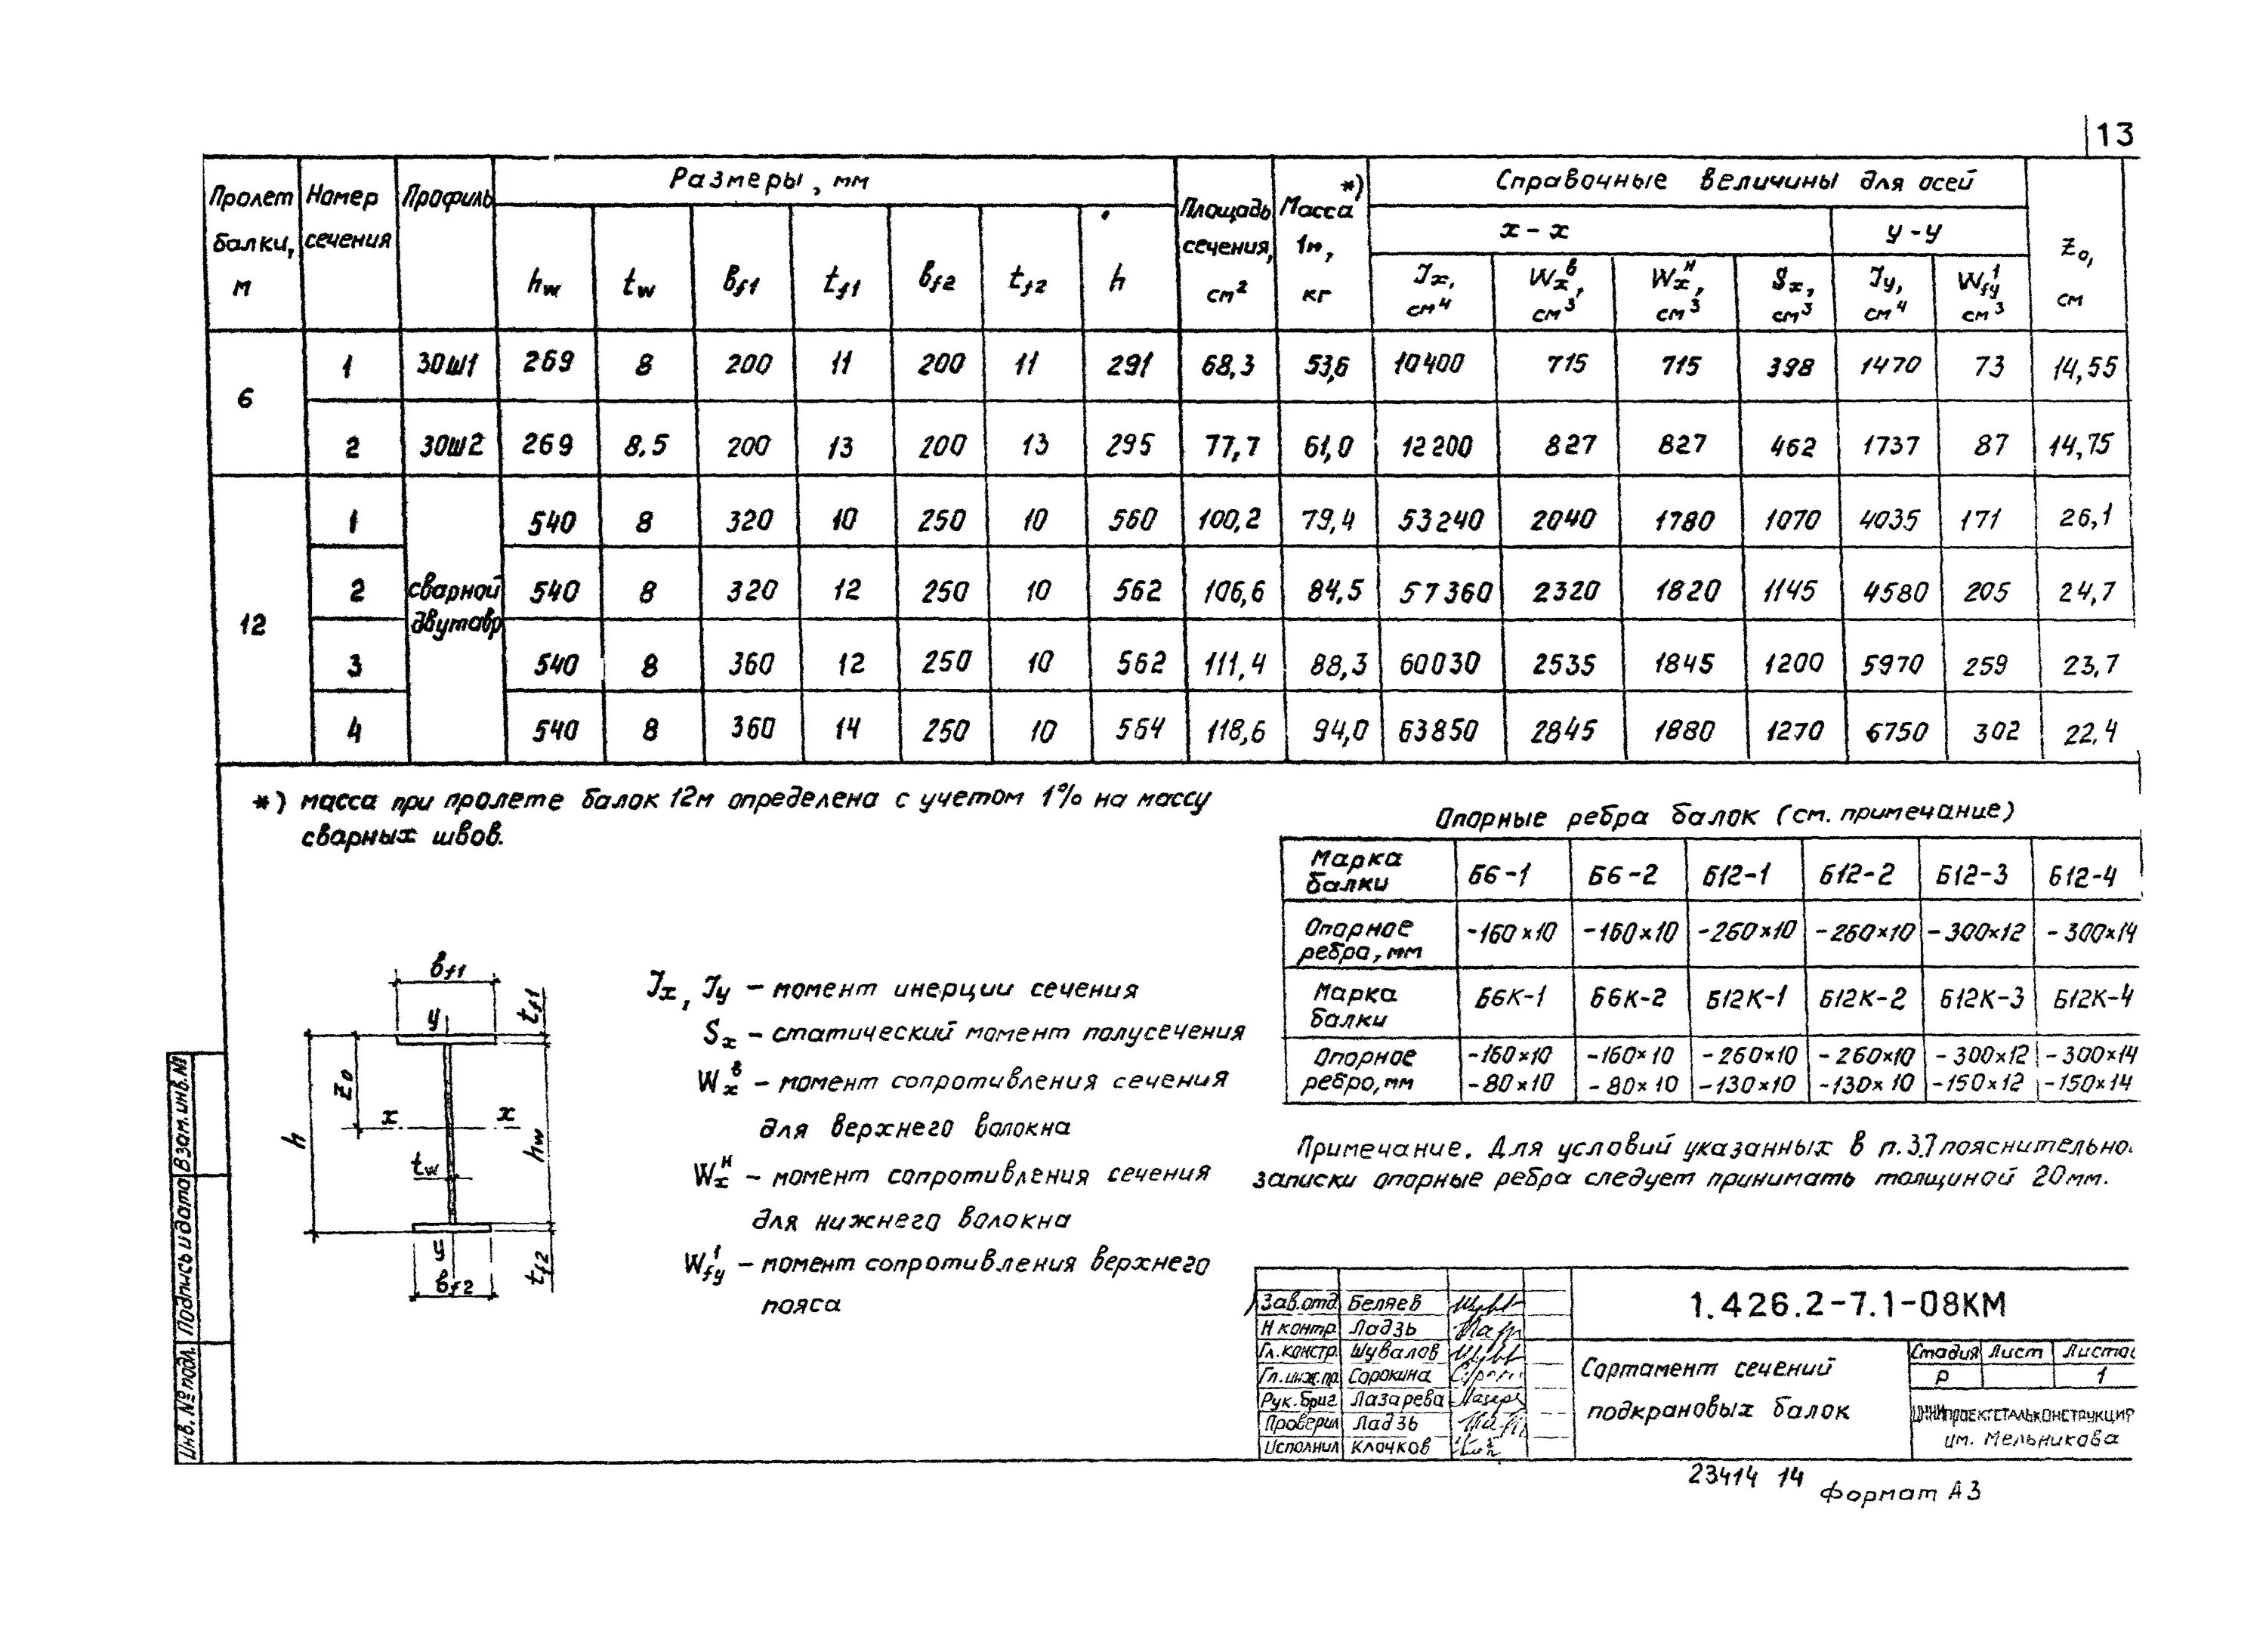 13
Пролет балки, м | Номер сечения | Профиль | Размеры, мм | Площадь сечения, см² | Масса *) 1м, кг | Справочные величины для осей | Z₀, см
x-x | y-y
hw | tw | bf1 | tf1 | bf2 | tf2 | h | Jx, см⁴ | Wxᵇ, см³ | Wxᴴ, см³ | Sx, см³ | Jy, см⁴ | Wfy¹ см³
6 | 1 | 30Ш1 | 269 | 8 | 200 | 11 | 200 | 11 | 291 | 68,3 | 53,6 | 10400 | 715 | 715 | 398 | 1470 | 73 | 14,55
2 | 30Ш2 | 269 | 8,5 | 200 | 13 | 200 | 13 | 295 | 77,7 | 61,0 | 12200 | 827 | 827 | 462 | 1737 | 87 | 14,75
12 | сварной двутавр | 1 | 540 | 8 | 320 | 10 | 250 | 10 | 560 | 100,2 | 79,4 | 53240 | 2040 | 1780 | 1070 | 4035 | 171 | 26,1
2 | 540 | 8 | 320 | 12 | 250 | 10 | 562 | 106,6 | 84,5 | 57360 | 2320 | 1820 | 1145 | 4580 | 205 | 24,7
3 | 540 | 8 | 360 | 12 | 250 | 10 | 562 | 111,4 | 88,3 | 60030 | 2535 | 1845 | 1200 | 5970 | 259 | 23,7
4 | 540 | 8 | 360 | 14 | 250 | 10 | 564 | 118,6 | 94,0 | 63850 | 2845 | 1880 | 1270 | 6750 | 302 | 22,4
*) масса при пролете балок 12м определена с учетом 1% на массу
сварных швов.
Опорные ребра балок (см. примечание)
Марка балки | Б6-1 | Б6-2 | Б12-1 | Б12-2 | Б12-3 | Б12-4
Опорное ребра, мм | -160×10 | -160×10 | -260×10 | -260×10 | -300×12 | -300×14
Марка балки | Б6К-1 | Б6К-2 | Б12К-1 | Б12К-2 | Б12К-3 | Б12К-4
Опорное | -160×10 | -160×10 | -260×10 | -260×10 | -300×12 | -300×14
ребро, мм | -80×10 | -80×10 | -130×10 | -130×10 | -150×12 | -150×14
Примечание. Для условий указанных в п.3.7 пояснительно
записки опорные ребра следует принимать толщиной 20мм.
bf1
tf1
y
z0
x x
h
hw
tw
y
bf2
tf2
Jx, Jy – момент инерции сечения
Sx – статический момент полусечения
Wxᵇ – момент сопротивления сечения
для верхнего волокна
Wxᴴ – момент сопротивления сечения
для нижнего волокна
Wfy¹ – момент сопротивления верхнего
пояса
Взам.инв.№
Подпись и дата
Инв. № подл.
Зав.отд. Беляев
Н контр. Ладзь
Гл.констр. Шувалов
Гл.инж.пр. Сорокина
Рук.бриг. Лазарева
Проверил Ладзь
Исполнил Клочков
1.426.2-7.1-08КМ
Сортамент сечений
подкрановых балок
Стадия Лист Листо
Р 1
ЦНИИпроектстальконструкция
им. Мельникова
23414 14
Формат А3